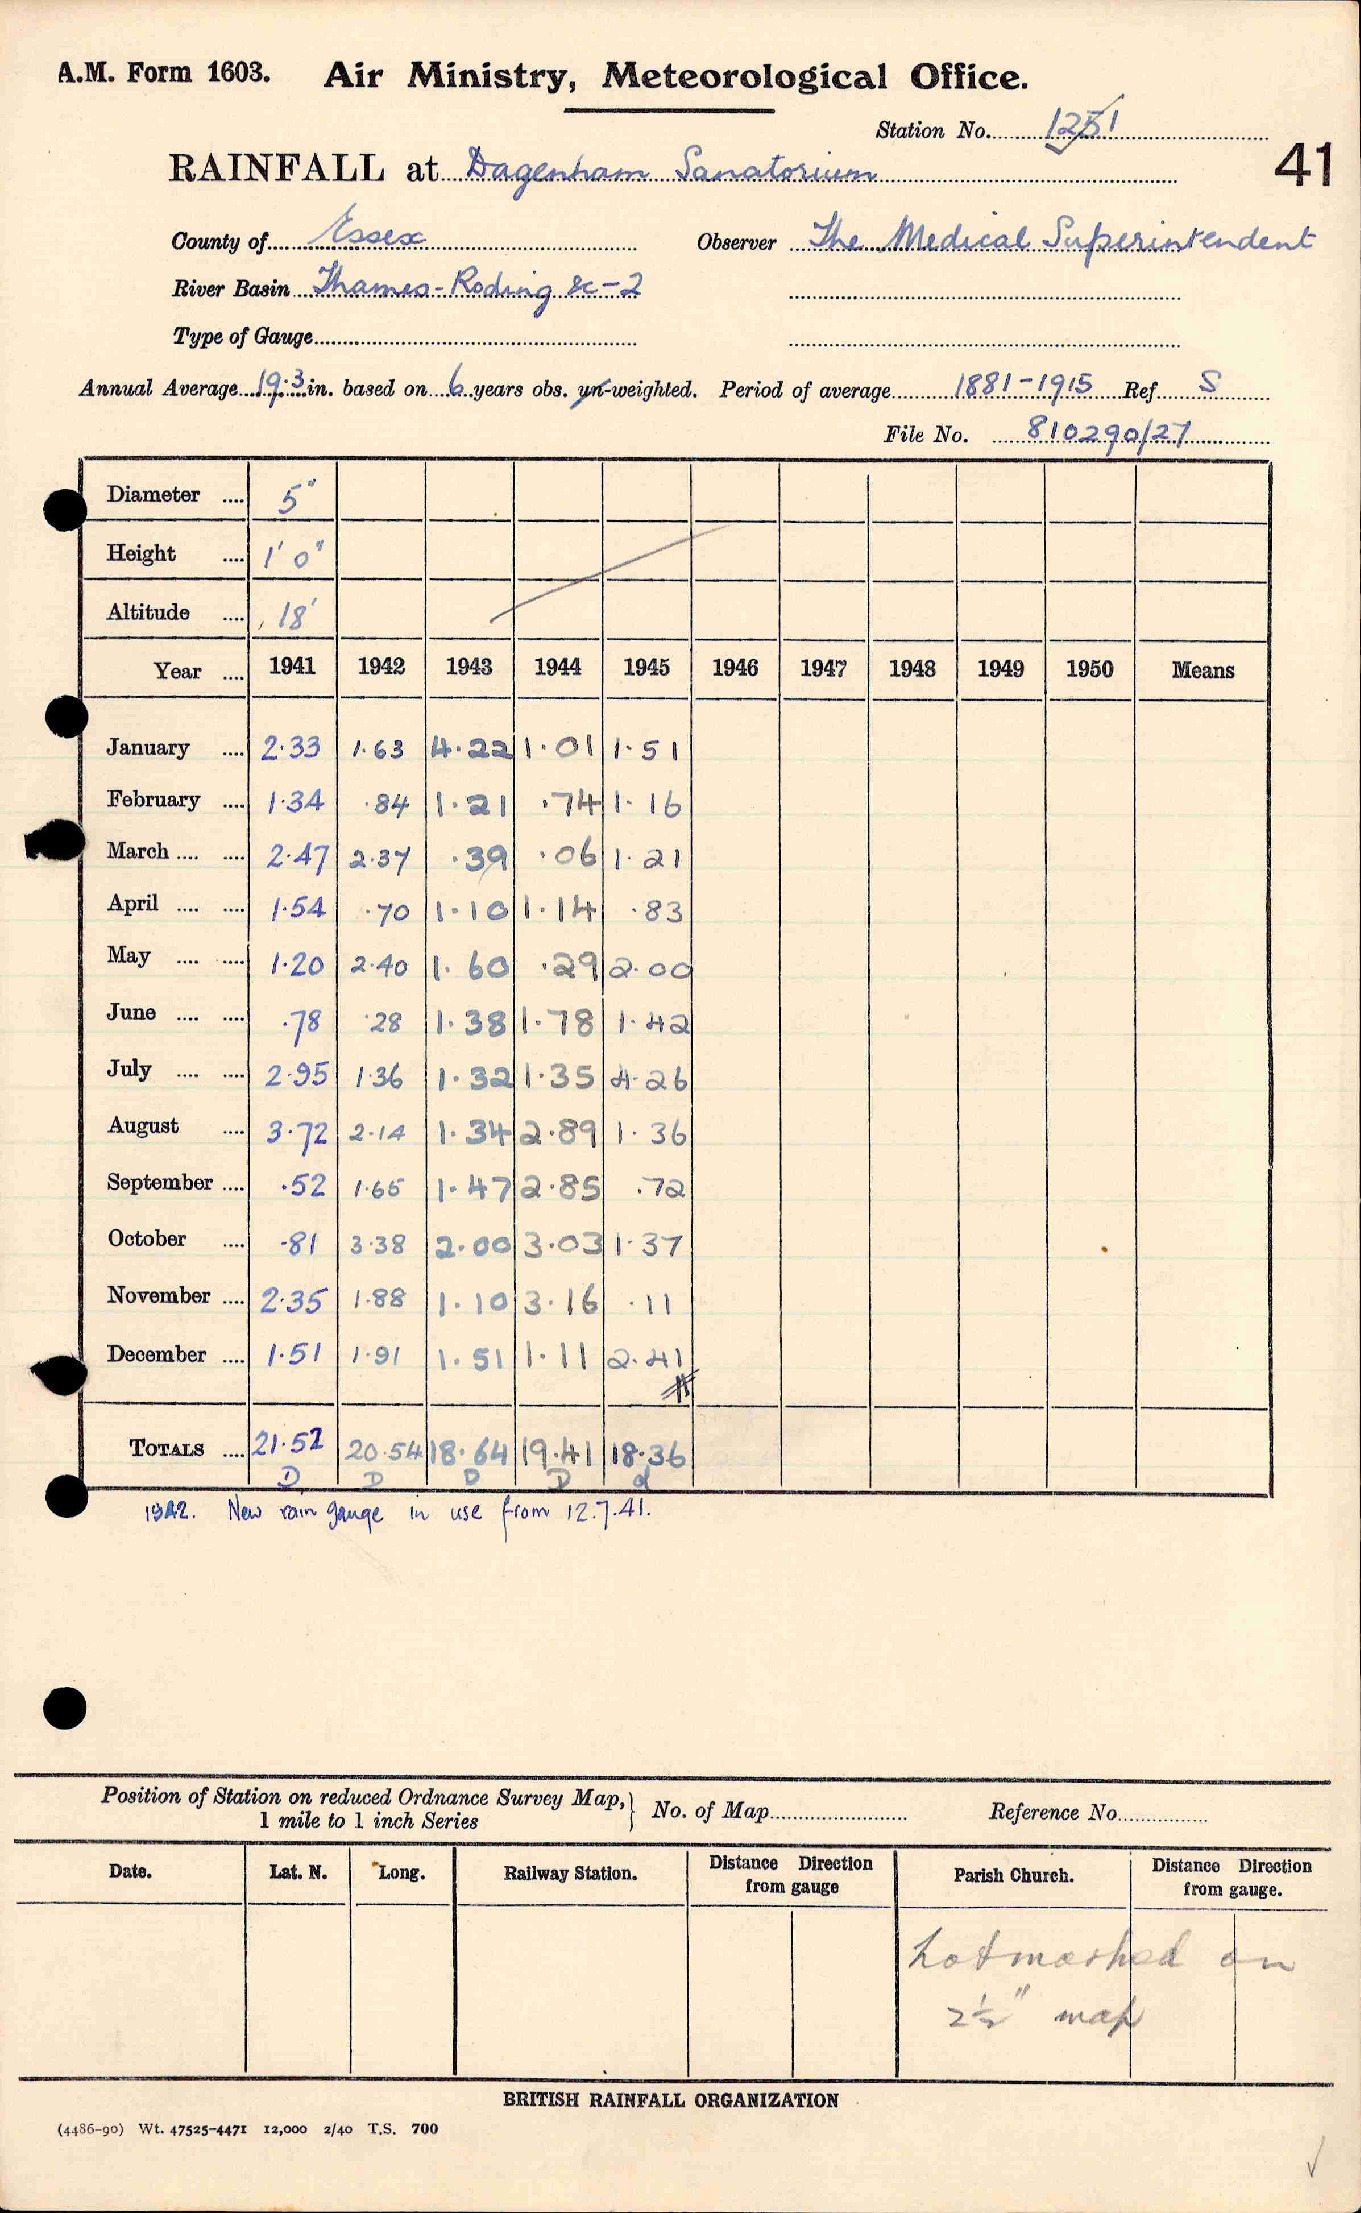 A.M. Form 1603. Air Ministry, Meteorological Office.
Station No. 1251
41
RAINFALL at Dagenham Sanatorium
County of Essex Observer The Medical Superintendent
River Basin Thames-Roding &c-2
Type of Gauge
Annual Average 19.3 in. based on 6 years obs. un-weighted. Period of average 1881-1915 Ref S
File No. 810290/27
Diameter .... 5"
Height .... 1' 0"
Altitude .... 18'
Year .... 1941 1942 1943 1944 1945 1946 1947 1948 1949 1950 Means
January .... 2.33 1.63 4.22 1.01 1.51
February .... 1.34 .84 1.21 .74 1.16
March .... .... 2.47 2.37 .39 .06 1.21
April .... .... 1.54 .70 1.10 1.14 .83
May .... .... 1.20 2.40 1.60 .29 2.00
June .... .... .78 .28 1.38 1.78 1.42
July .... .... 2.95 1.36 1.32 1.35 4.26
August .... 3.72 2.14 1.34 2.89 1.36
September .... .52 1.65 1.47 2.85 .72
October .... .81 3.38 2.00 3.03 1.37
November .... 2.35 1.88 1.10 3.16 .11
December .... 1.51 1.91 1.51 1.11 2.41
TOTALS .... 21.52 20.54 18.64 19.41 18.36
D D D D d
1942. New rain gauge in use from 12.7.41.
Position of Station on reduced Ordnance Survey Map,} No. of Map Reference No.
1 mile to 1 inch Series
Date. Lat. N. Long. Railway Station. Distance Direction from gauge Parish Church. Distance Direction from gauge.
hot marked on
2½" map
BRITISH RAINFALL ORGANIZATION
(4486-90) Wt. 47525-4471 12,000 2/40 T.S. 700